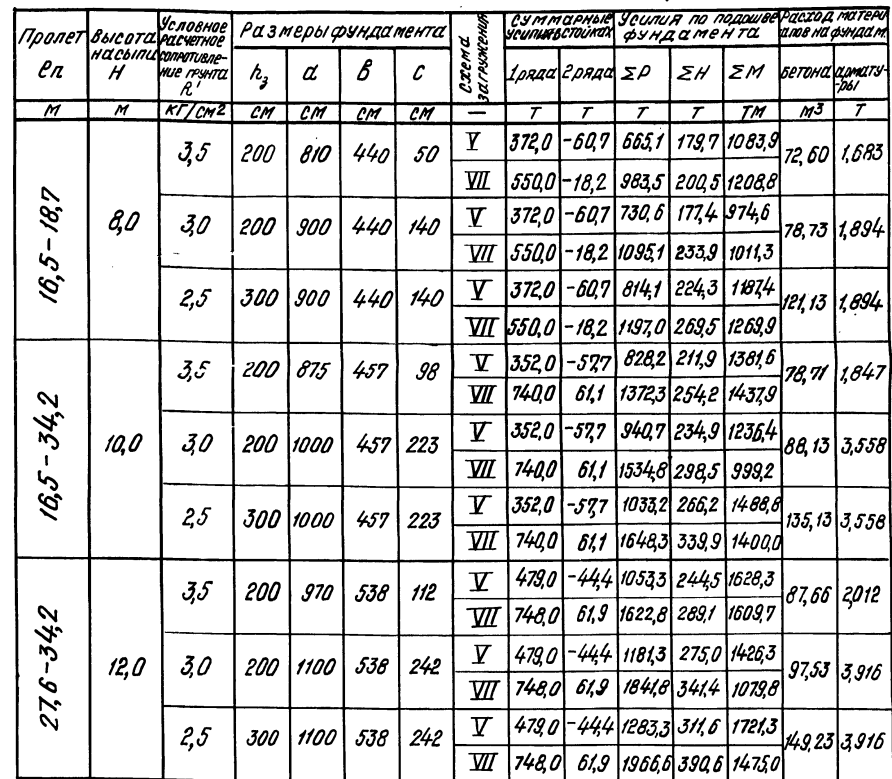 Пролет ℓп | Высота насыпи H | Условное расчетное сопротивление грунта R' | Размеры фундамента | Схема загружения | Суммарные усилия в стойках | Усилия по подошве фундамента | Расход материалов на фундам.
h₃ | d | в | с | 1 ряда | 2 ряда | ΣР | ΣН | ΣМ | бетона | арматуры
м | м | кГ/см2 | см | см | см | см | — | Т | Т | Т | Т | ТМ | м3 | Т
16,5-18,7 | 8,0 | 3,5 | 200 | 810 | 440 | 50 | V | 372,0 | -60,7 | 665,1 | 179,7 | 1083,9 | 72,60 | 1,683
VII | 550,0 | -18,2 | 983,5 | 200,5 | 1208,8
3,0 | 200 | 900 | 440 | 140 | V | 372,0 | -60,7 | 730,6 | 177,4 | 974,6 | 78,73 | 1,894
VII | 550,0 | -18,2 | 1095,1 | 233,9 | 1011,3
2,5 | 300 | 900 | 440 | 140 | V | 372,0 | -60,7 | 814,1 | 224,3 | 1187,4 | 121,13 | 1,894
VII | 550,0 | -18,2 | 1197,0 | 269,5 | 1269,9
16,5-34,2 | 10,0 | 3,5 | 200 | 875 | 457 | 98 | V | 352,0 | -57,7 | 828,2 | 211,9 | 1381,6 | 78,71 | 1,847
VII | 740,0 | 61,1 | 1372,3 | 254,2 | 1437,9
3,0 | 200 | 1000 | 457 | 223 | V | 352,0 | -57,7 | 940,7 | 234,9 | 1236,4 | 88,13 | 3,558
VII | 740,0 | 61,1 | 1534,8 | 298,5 | 999,2
2,5 | 300 | 1000 | 457 | 223 | V | 352,0 | -57,7 | 1033,2 | 266,2 | 1488,8 | 135,13 | 3,558
VII | 740,0 | 61,1 | 1648,3 | 339,9 | 1400,0
27,6-34,2 | 12,0 | 3,5 | 200 | 970 | 538 | 112 | V | 479,0 | -44,4 | 1053,3 | 244,5 | 1628,3 | 87,66 | 2,012
VII | 748,0 | 61,9 | 1622,8 | 289,1 | 1609,7
3,0 | 200 | 1100 | 538 | 242 | V | 479,0 | -44,4 | 1181,3 | 275,0 | 1426,3 | 97,53 | 3,916
VII | 748,0 | 61,9 | 1841,8 | 341,4 | 1079,8
2,5 | 300 | 1100 | 538 | 242 | V | 479,0 | -44,4 | 1283,3 | 311,6 | 1721,3 | 149,23 | 3,916
VII | 748,0 | 61,9 | 1966,6 | 390,6 | 1475,0